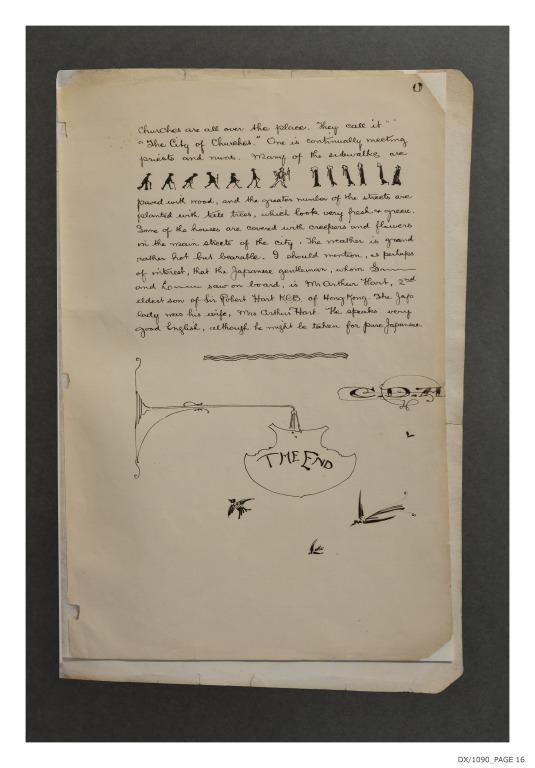 0
Churches are all over the place. They call it
"The City of Churches." One is continually meeting
priests and nuns. Many of the sidewalks are
paved with wood, and the greater number of the streets are
planted with tall trees, which look very fresh & green.
Some of the houses are covered with creepers and flowers
in the main streets of the city. The weather is grand
rather hot but bearable. I should mention, as perhaps
of interest, that the Japanese gentleman, whom G
and L saw on board, is Mr Arthur Hart, 2nd
eldest son of Sir Robert Hart K.C.B. of Hong Kong. The Jap
lady was his wife, Mrs Arthur Hart. He speaks very
good English, although he might be taken for pure Japanese.
C.D.A
THE END
DX/1090_PAGE 16